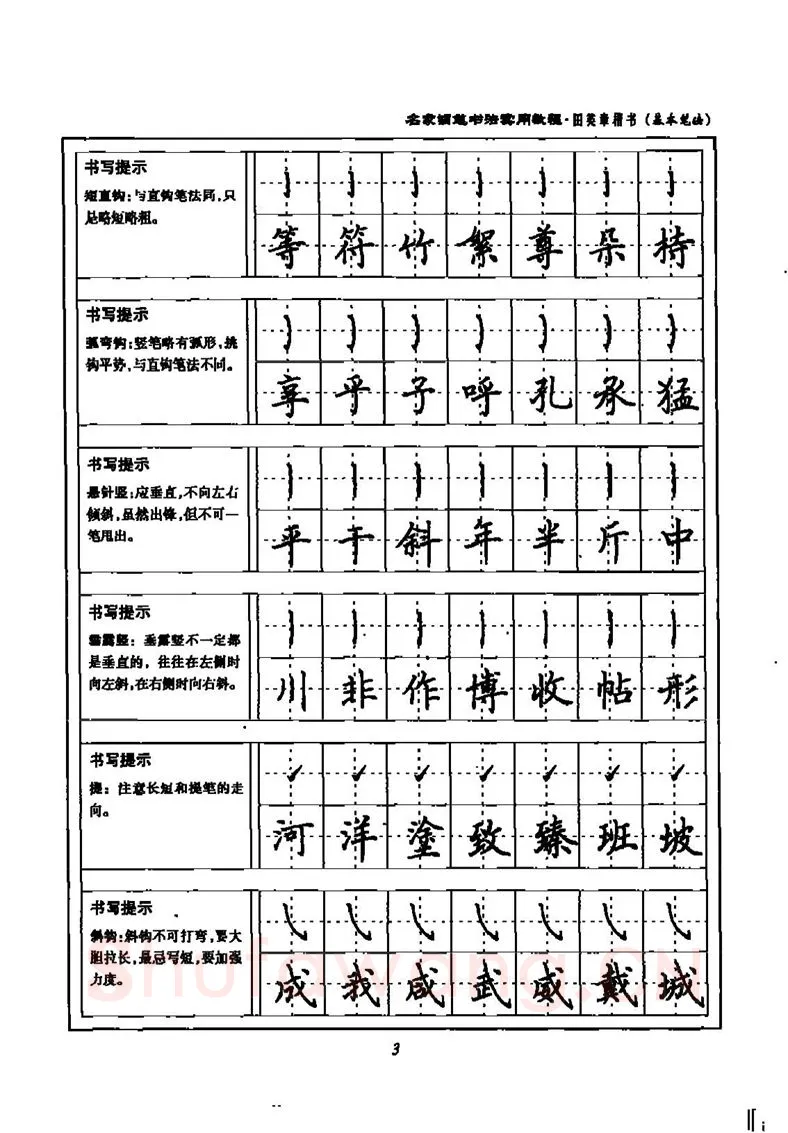 名家钢笔书法实用教程·田英章楷书(基本笔画)
书写提示
短直钩:与直钩笔法同,只
是略短略粗。
等符竹絮尊朵持
书写提示
弧弯钩:竖笔略有弧形,挑
钩平势,与直钩笔法不同。
享乎子呼孔承猛
书写提示
悬针竖:应垂直,不向左右
倾斜,虽然出锋,但不可一
笔甩出。
平干斜年半斤中
书写提示
垂露竖:垂露竖不一定都
是垂直的,往往在左侧时
向左斜,在右侧时向右斜。
川非作博收帖形
书写提示
提:注意长短和提笔的走
向。
河洋塗致臻班坡
书写提示
斜钩:斜钩不可打弯,要大
胆拉长,最忌写短,要加强
力度。
成我咸武威戴城
Shufawang.CN
3